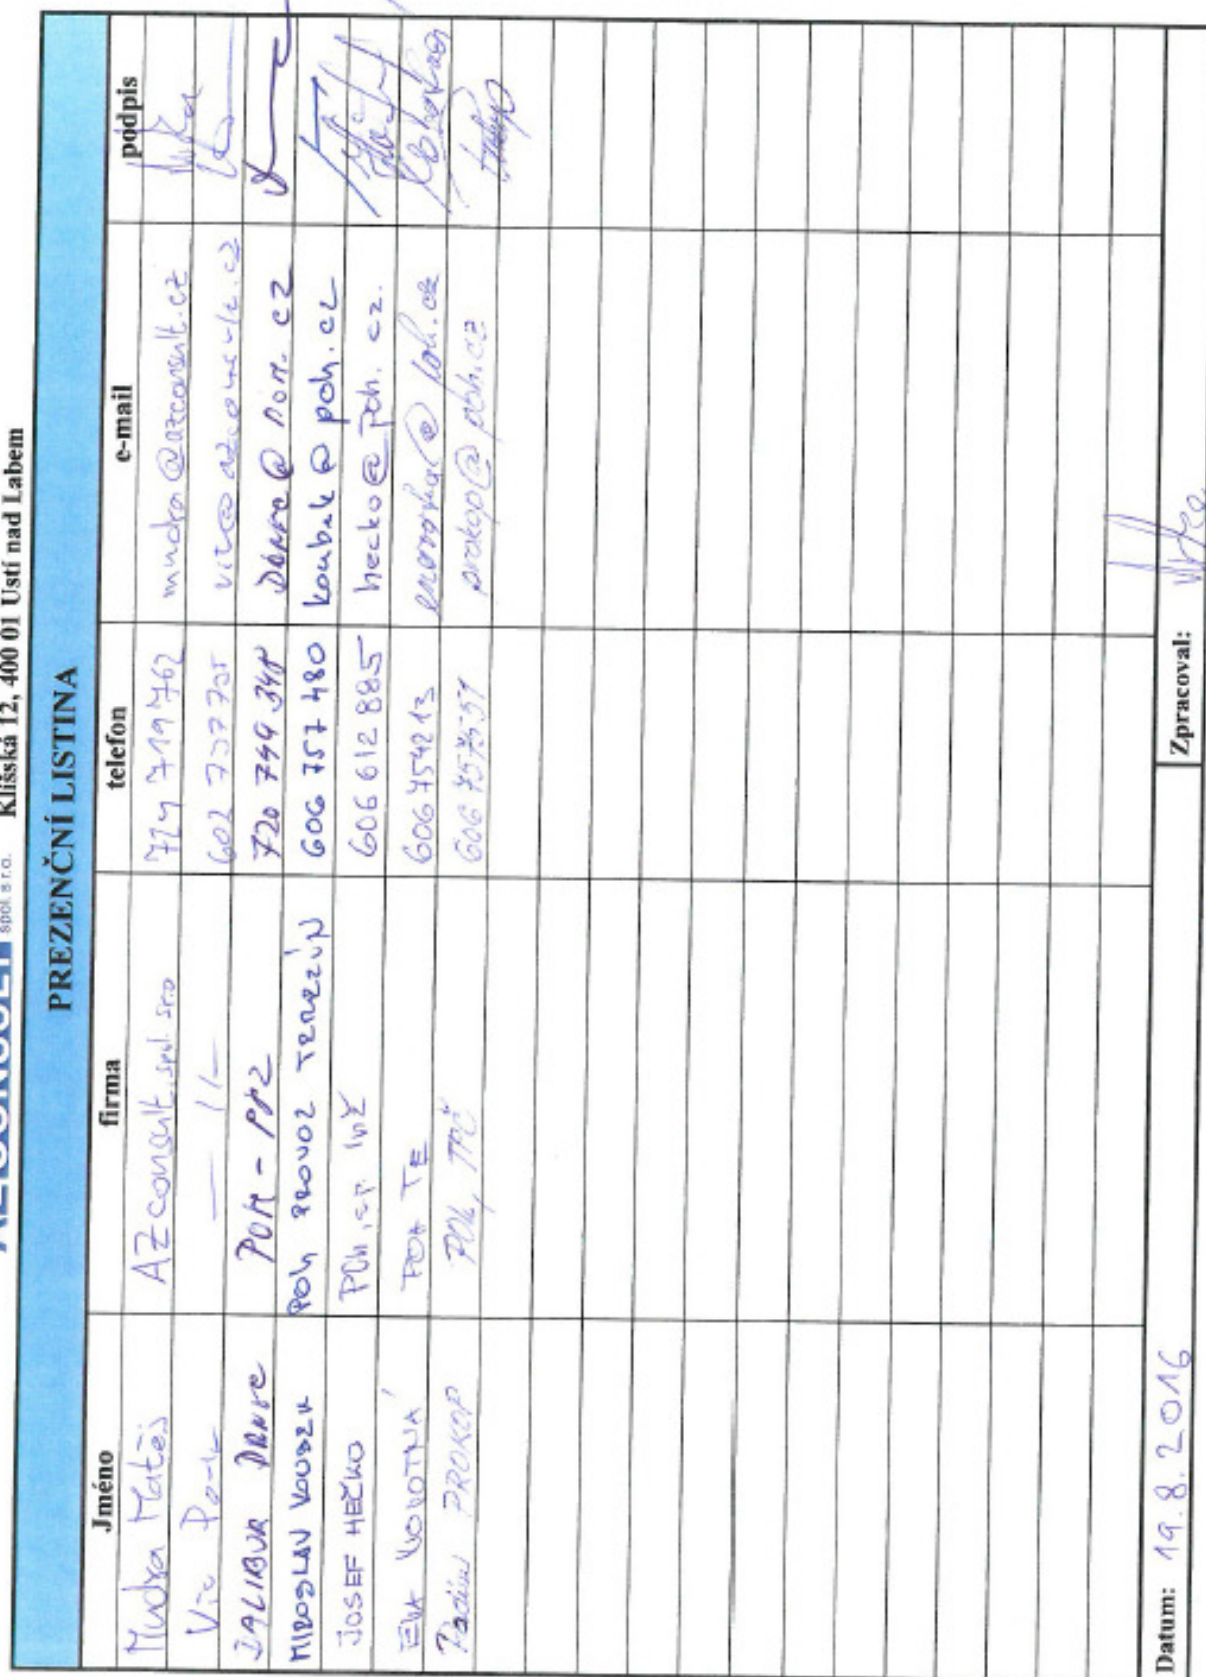 spol. s r.o. Klíšská 12, 400 01 Ústí nad Labem
PREZENČNÍ LISTINA
Jméno firma telefon e-mail podpis
Mudra Matěj AZ consult, spol. s r.o 724 719 762 mudra@azconsult.cz
Víc — 11 — 602
DALIBOR POH - PP2 720 749 348
MIROSLAV KOUBEK Poh PROVOZ TEREZÍN 606 757 480 koubek@poh.cz
JOSEF HEČKO POh, s.p. INŽ 606 612 885 hecko@poh.cz.
EVA NOVOTNÁ POH TE 606 754213 enovotna@poh.cz
Radim PROKOP POh, TPČ 606 757551 prokop@poh.cz
Datum: 19.8.2016 Zpracoval: